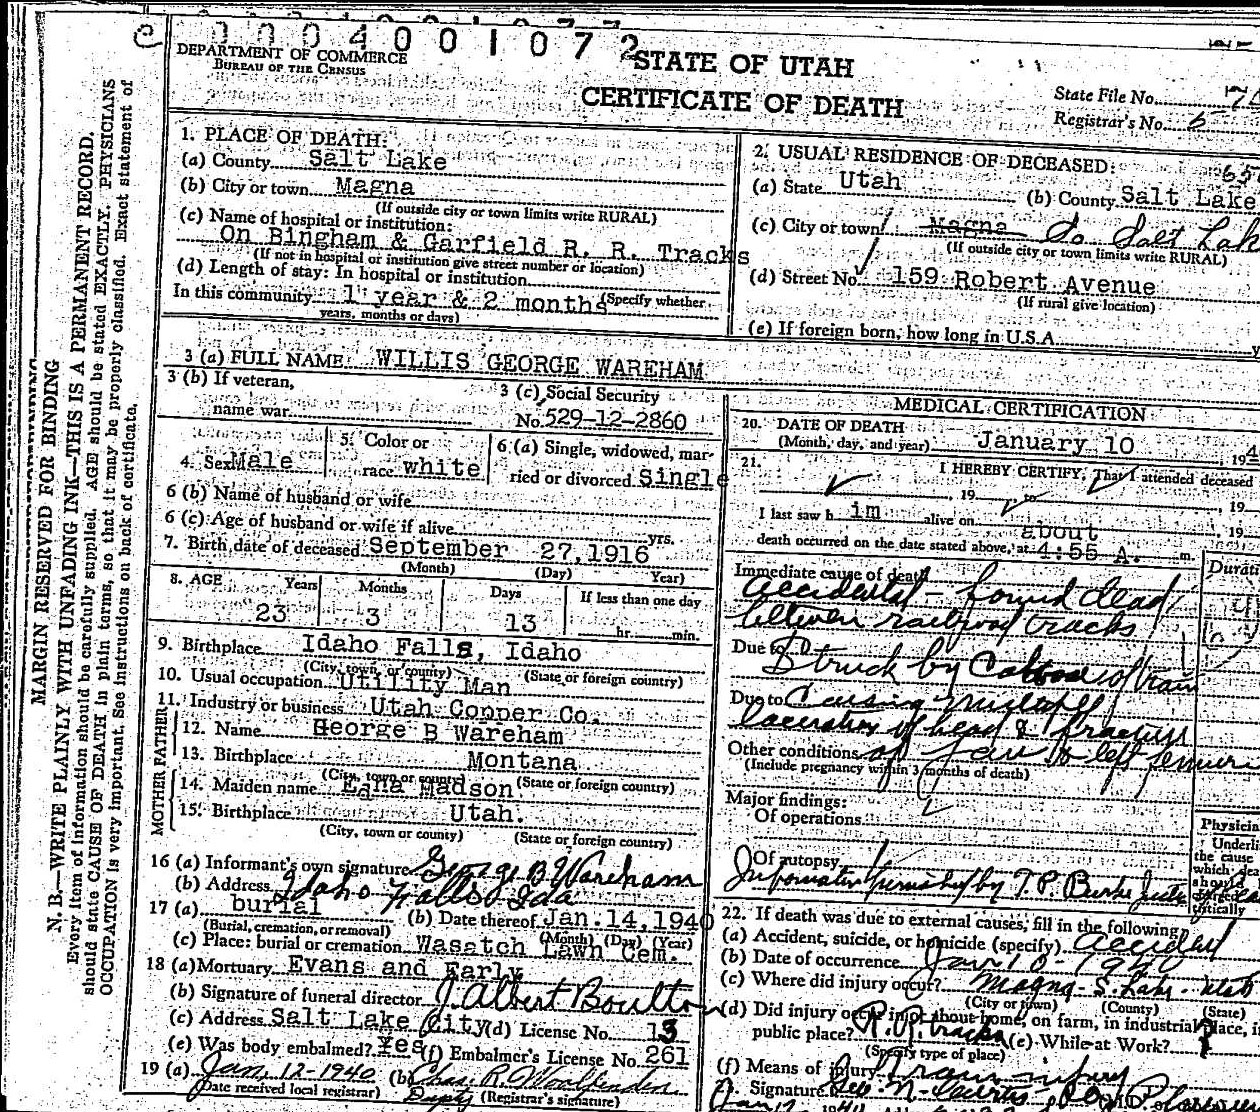 0 0 0 4 0 0 1 0 7 2
DEPARTMENT OF COMMERCE
BUREAU OF THE CENSUS
STATE OF UTAH
CERTIFICATE OF DEATH
State File No.
Registrar's No. 6
MARGIN RESERVED FOR BINDING
N. B.—WRITE PLAINLY WITH UNFADING INK—THIS IS A PERMANENT RECORD.
Every item of information should be carefully supplied. AGE should be stated EXACTLY. PHYSICIANS
should state CAUSE OF DEATH in plain terms, so that it may be properly classified. Exact statement of
OCCUPATION is very important. See instructions on back of certificate.
1. PLACE OF DEATH:
(a) County Salt Lake
(b) City or town Magna
(If outside city or town limits write RURAL)
(c) Name of hospital or institution:
On Bingham & Garfield R. R. Tracks
(If not in hospital or institution give street number or location)
(d) Length of stay: In hospital or institution
In this community 1 year & 2 months (Specify whether
years, months or days)
2. USUAL RESIDENCE OF DECEASED:
(a) State Utah (b) County Salt Lake
(c) City or town Magna So Salt Lake
(If outside city or town limits write RURAL)
(d) Street No. 159 Robert Avenue
(If rural give location)
(e) If foreign born, how long in U.S.A.
3 (a) FULL NAME WILLIS GEORGE WAREHAM
3 (b) If veteran,
name war
3 (c) Social Security
No. 529-12-2860
4. Sex Male
5. Color or
race white
6 (a) Single, widowed, mar-
ried or divorced Single
6 (b) Name of husband or wife
6 (c) Age of husband or wife if alive yrs.
7. Birth date of deceased September 27, 1916
(Month) (Day) Year)
8. AGE Years Months Days If less than one day
23 3 13 hr. min.
9. Birthplace Idaho Falls, Idaho
(City, town, or county) (State or foreign country)
10. Usual occupation Utility Man
11. Industry or business Utah Copper Co.
FATHER
12. Name George B Wareham
13. Birthplace Montana
(City, town or county) (State or foreign country)
MOTHER
14. Maiden name Edna Madson
15. Birthplace Utah.
(City, town or county) (State or foreign country)
16 (a) Informant's own signature George B Wareham
(b) Address Idaho Falls Ida
17 (a) burial (b) Date thereof Jan. 14, 1940
(Burial, cremation, or removal) (Month) (Day) (Year)
(c) Place: burial or cremation Wasatch Lawn Cem.
18 (a) Mortuary Evans and Early
(b) Signature of funeral director J. Albert Boulton
(c) Address Salt Lake City (d) License No. 13
(e) Was body embalmed? Yes (f) Embalmer's License No. 261
19 (a) Jan. 12-1940 (b) Chas. R.
(Date received local registrar) Deputy (Registrar's signature)
MEDICAL CERTIFICATION
20. DATE OF DEATH
(Month, day, and year) January 10 194
21. I HEREBY CERTIFY, That I attended deceased
, 19 , to , 19
I last saw h im alive on , 19
about
death occurred on the date stated above, at 4:55 A. m.
Immediate cause of death Durati
accidental - found dead
between railroad tracks
Due to Struck by Caboose of train
Due to Causing multiple
laceration of head & fracture
Other conditions of jaw & left femur
(Include pregnancy within 3 months of death)
Major findings:
Of operations
Of autopsy
Information furnished by T. P. Burke
Physician
Underli
the cause
which dea
should
charged
tistically
22. If death was due to external causes, fill in the following:
(a) Accident, suicide, or homicide (specify) accident
(b) Date of occurrence Jan 10 1940
(c) Where did injury occur? Magna - S. Lake - Utah
(City or town) (County) (State)
(d) Did injury occur in or about home, on farm, in industrial place, in
public place? R. R. tracks (e) While at Work?
(Specify type of place)
(f) Means of injury Train injury
Signature Geo. N. Curtis